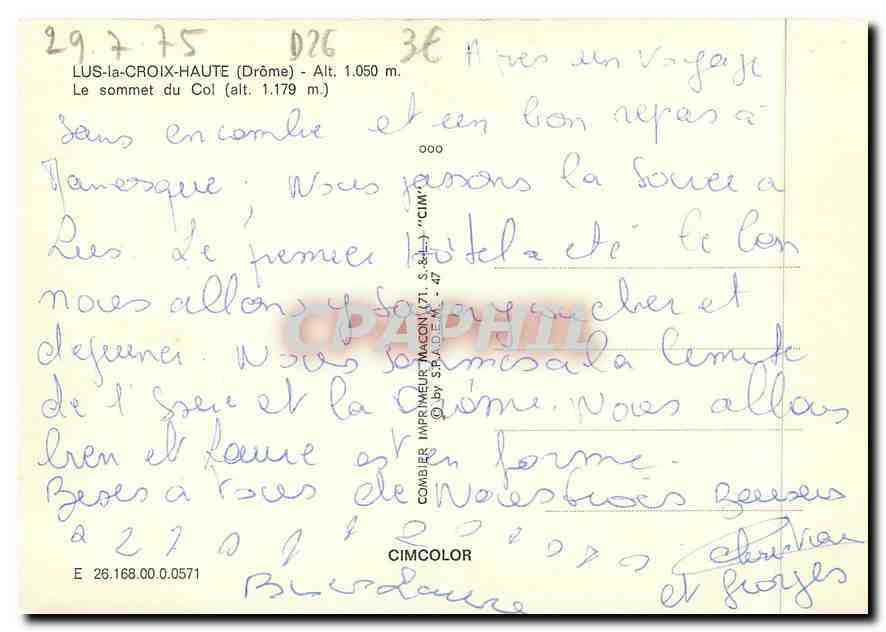 29.7.75 D26 3€
LUS-la-CROIX-HAUTE (Drôme) - Alt. 1.050 m.
Le sommet du Col (alt. 1.179 m.)
Apres un voyage
sans encombre et un bon repas à
Manosque, Nous passons la soirée a
Lus. Le premier Hôtel a été le bon
nous allons y souper coucher et
dejeuner. Nous sommes à la limite
de l'Isere et la Drôme. Nous allons
bien et Laure est en forme.
Bises à tous de Nous trois Baisers
Christian
et Georges
Bises Laure
ooo
COMBIER IMPRIMEUR MACON (71. S.-&-L.) "CIM"
© by S.P.A.D.E.M. - 47
CPAPHIL
CIMCOLOR
E 26.168.00.0.0571